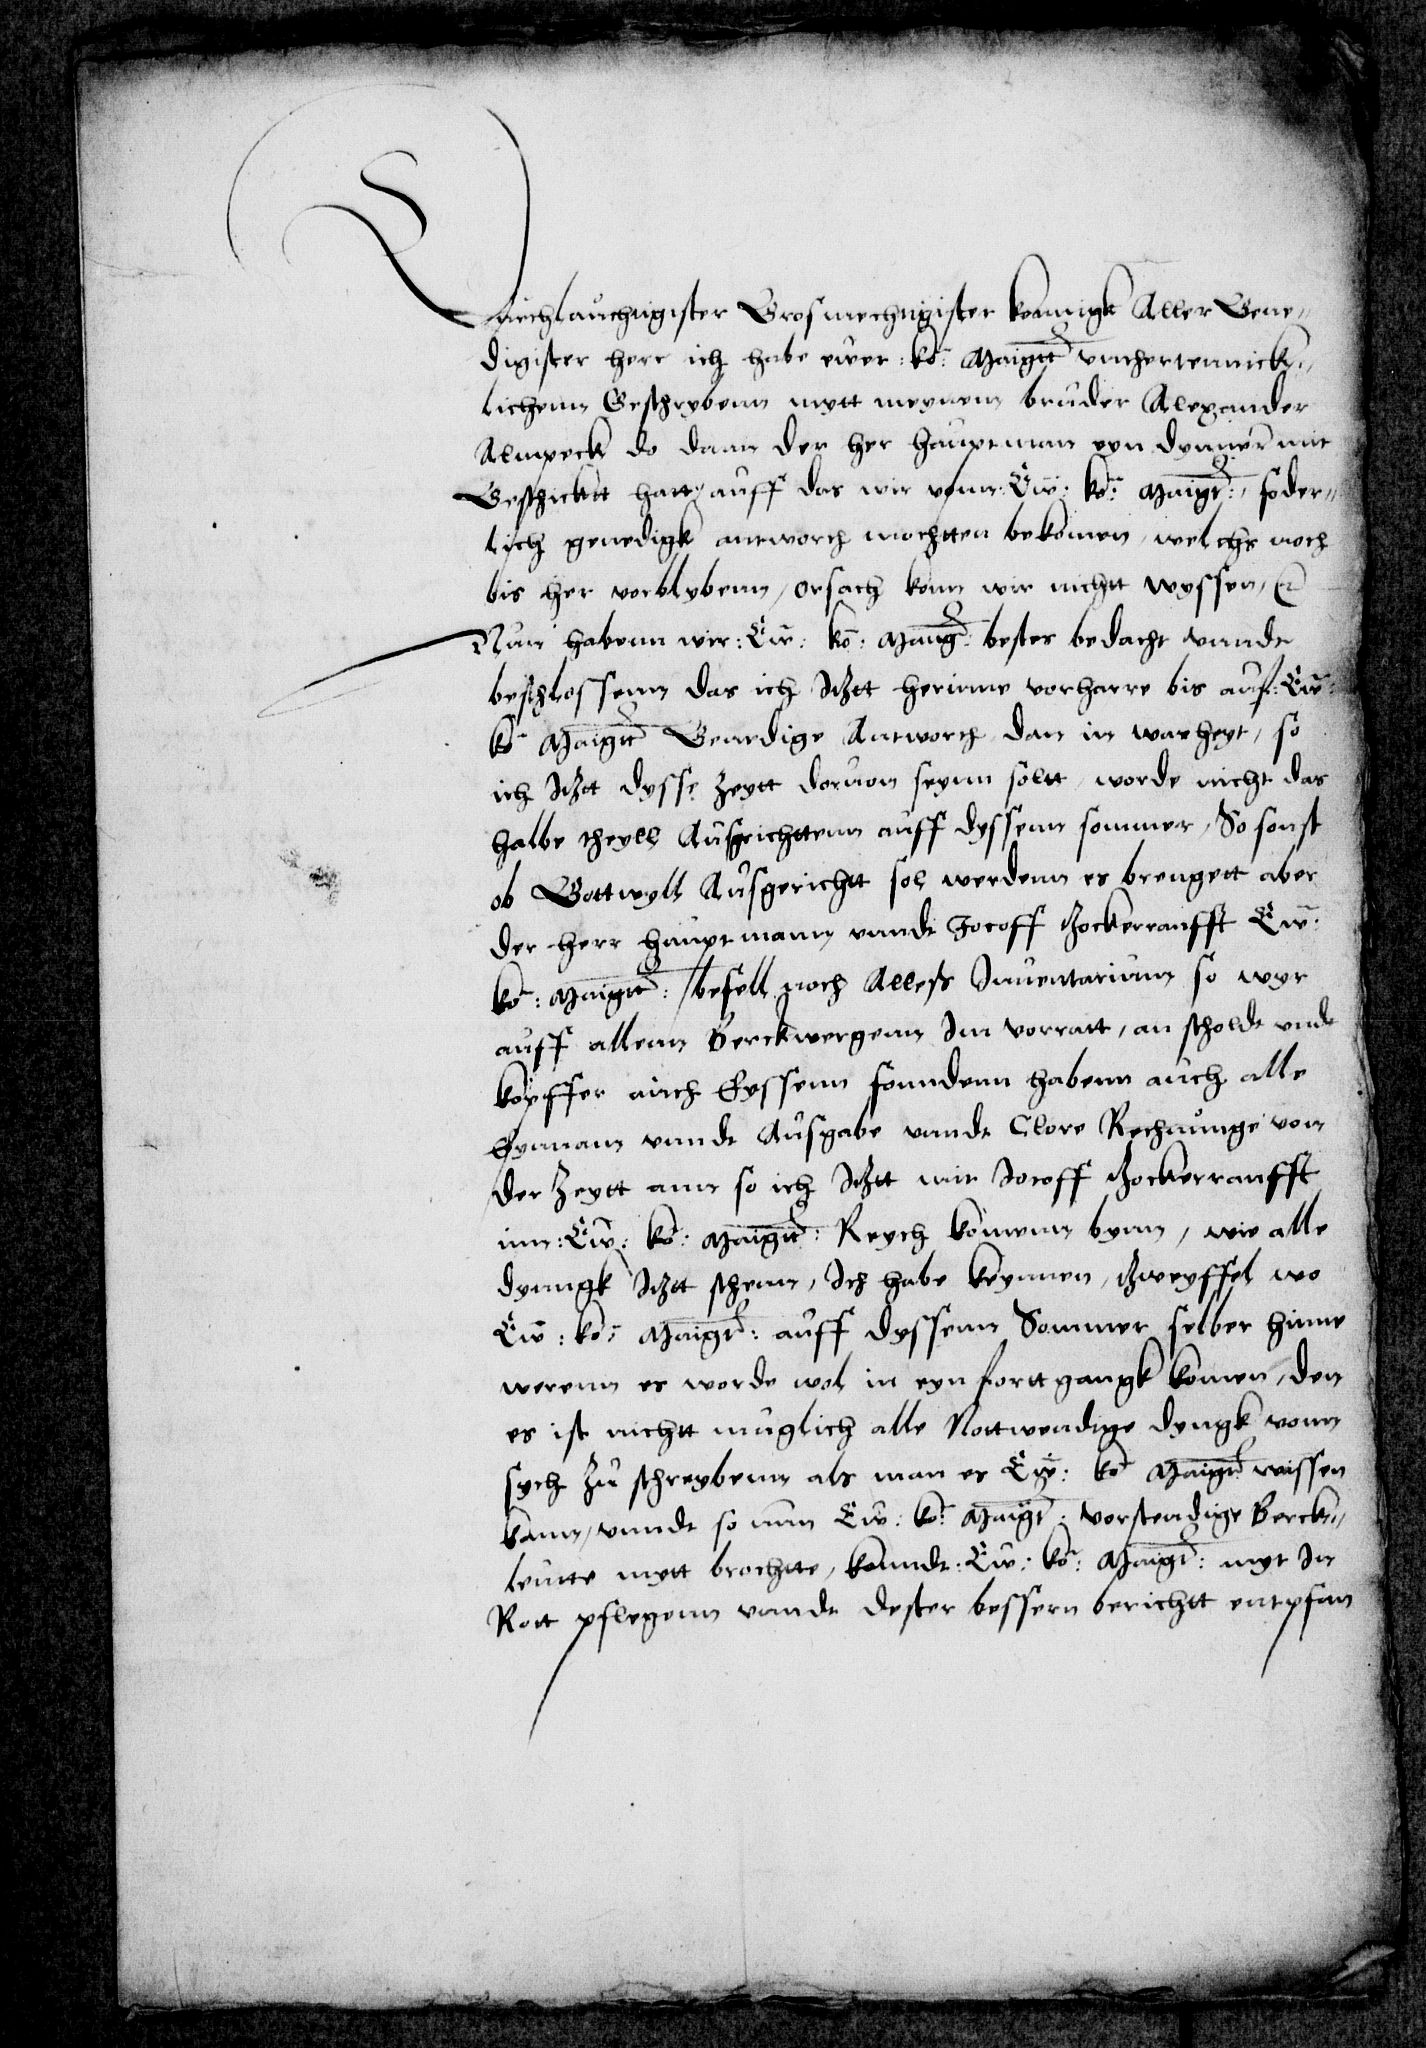 Durchlauchtigister Grosmechtigister konnigk Aller Gene„
digister herr ich habe ewer: ko: Maigtt unthertennick„
lichenn Geschrybenn mytt meynem bruder Alexander
Almpeck do dann der her hauptman eyn dynner mit
Geschicktt hatt, auff das wir vonn: Ew: ko: Maigt:, foder„
lich genedigk antworth mochtten bekomen, welchs noch
bis her vorblybenn, orsach konn wir nichtt wyssen, etc
Nun habenn wir: Ew: ko: Maitg: bestes bedacht vnnde
beschlossenn das ich Itztt herinne vorharre bis auf: Ew:
ko Maigtt Genedige Antworth dan in warheyt, so
ich Itztt dysse Zeytt dorvon seynn soltt, worde nicht das
halbe theyll Ausrichttenn auff dyssenn sommer, So sonst
ob Gott wyll Ausgerichtt sol werdenn es brengett aber
der herr hauptmann vnnde Jocoff Zockerranfft Ew:
ko: Maigtt: befell noch Alless Inuentarium so wyr
auff allenn Berckwergenn Im vorratt, an scholde vnde
kopffer auch Eyssenn fonndenn habenn auch alle
Eynnam vnnde Ausgabe vnnde Clore Rechnunge von
der Zeytt ann so ich Itztt mit Jocoff Zockerranfft
inn: Ew: ko: Maigtt: Reych komenn bynn, wie alle
dynngk Itztt sthenn, Ich habe keynnen, Zweyffel wo
Ew: ko: Maigt: auff dyssenn Sommer selber hinne
werenn es worde wol in eyn forttgangk komen, den
es ist nichtt muglich alle Nottwendige dyngk vonn
sych zu schreybenn als man es Ew: ko Maigtt wissen
kann, vnnde so nun Ew: ko: Maigt: vorstendige Berck„
leutte mytt brochtte, konnde: Ew: ko: Maigt: myt In
Rott pflegenn vnnde dester bessern berichtt entpfan